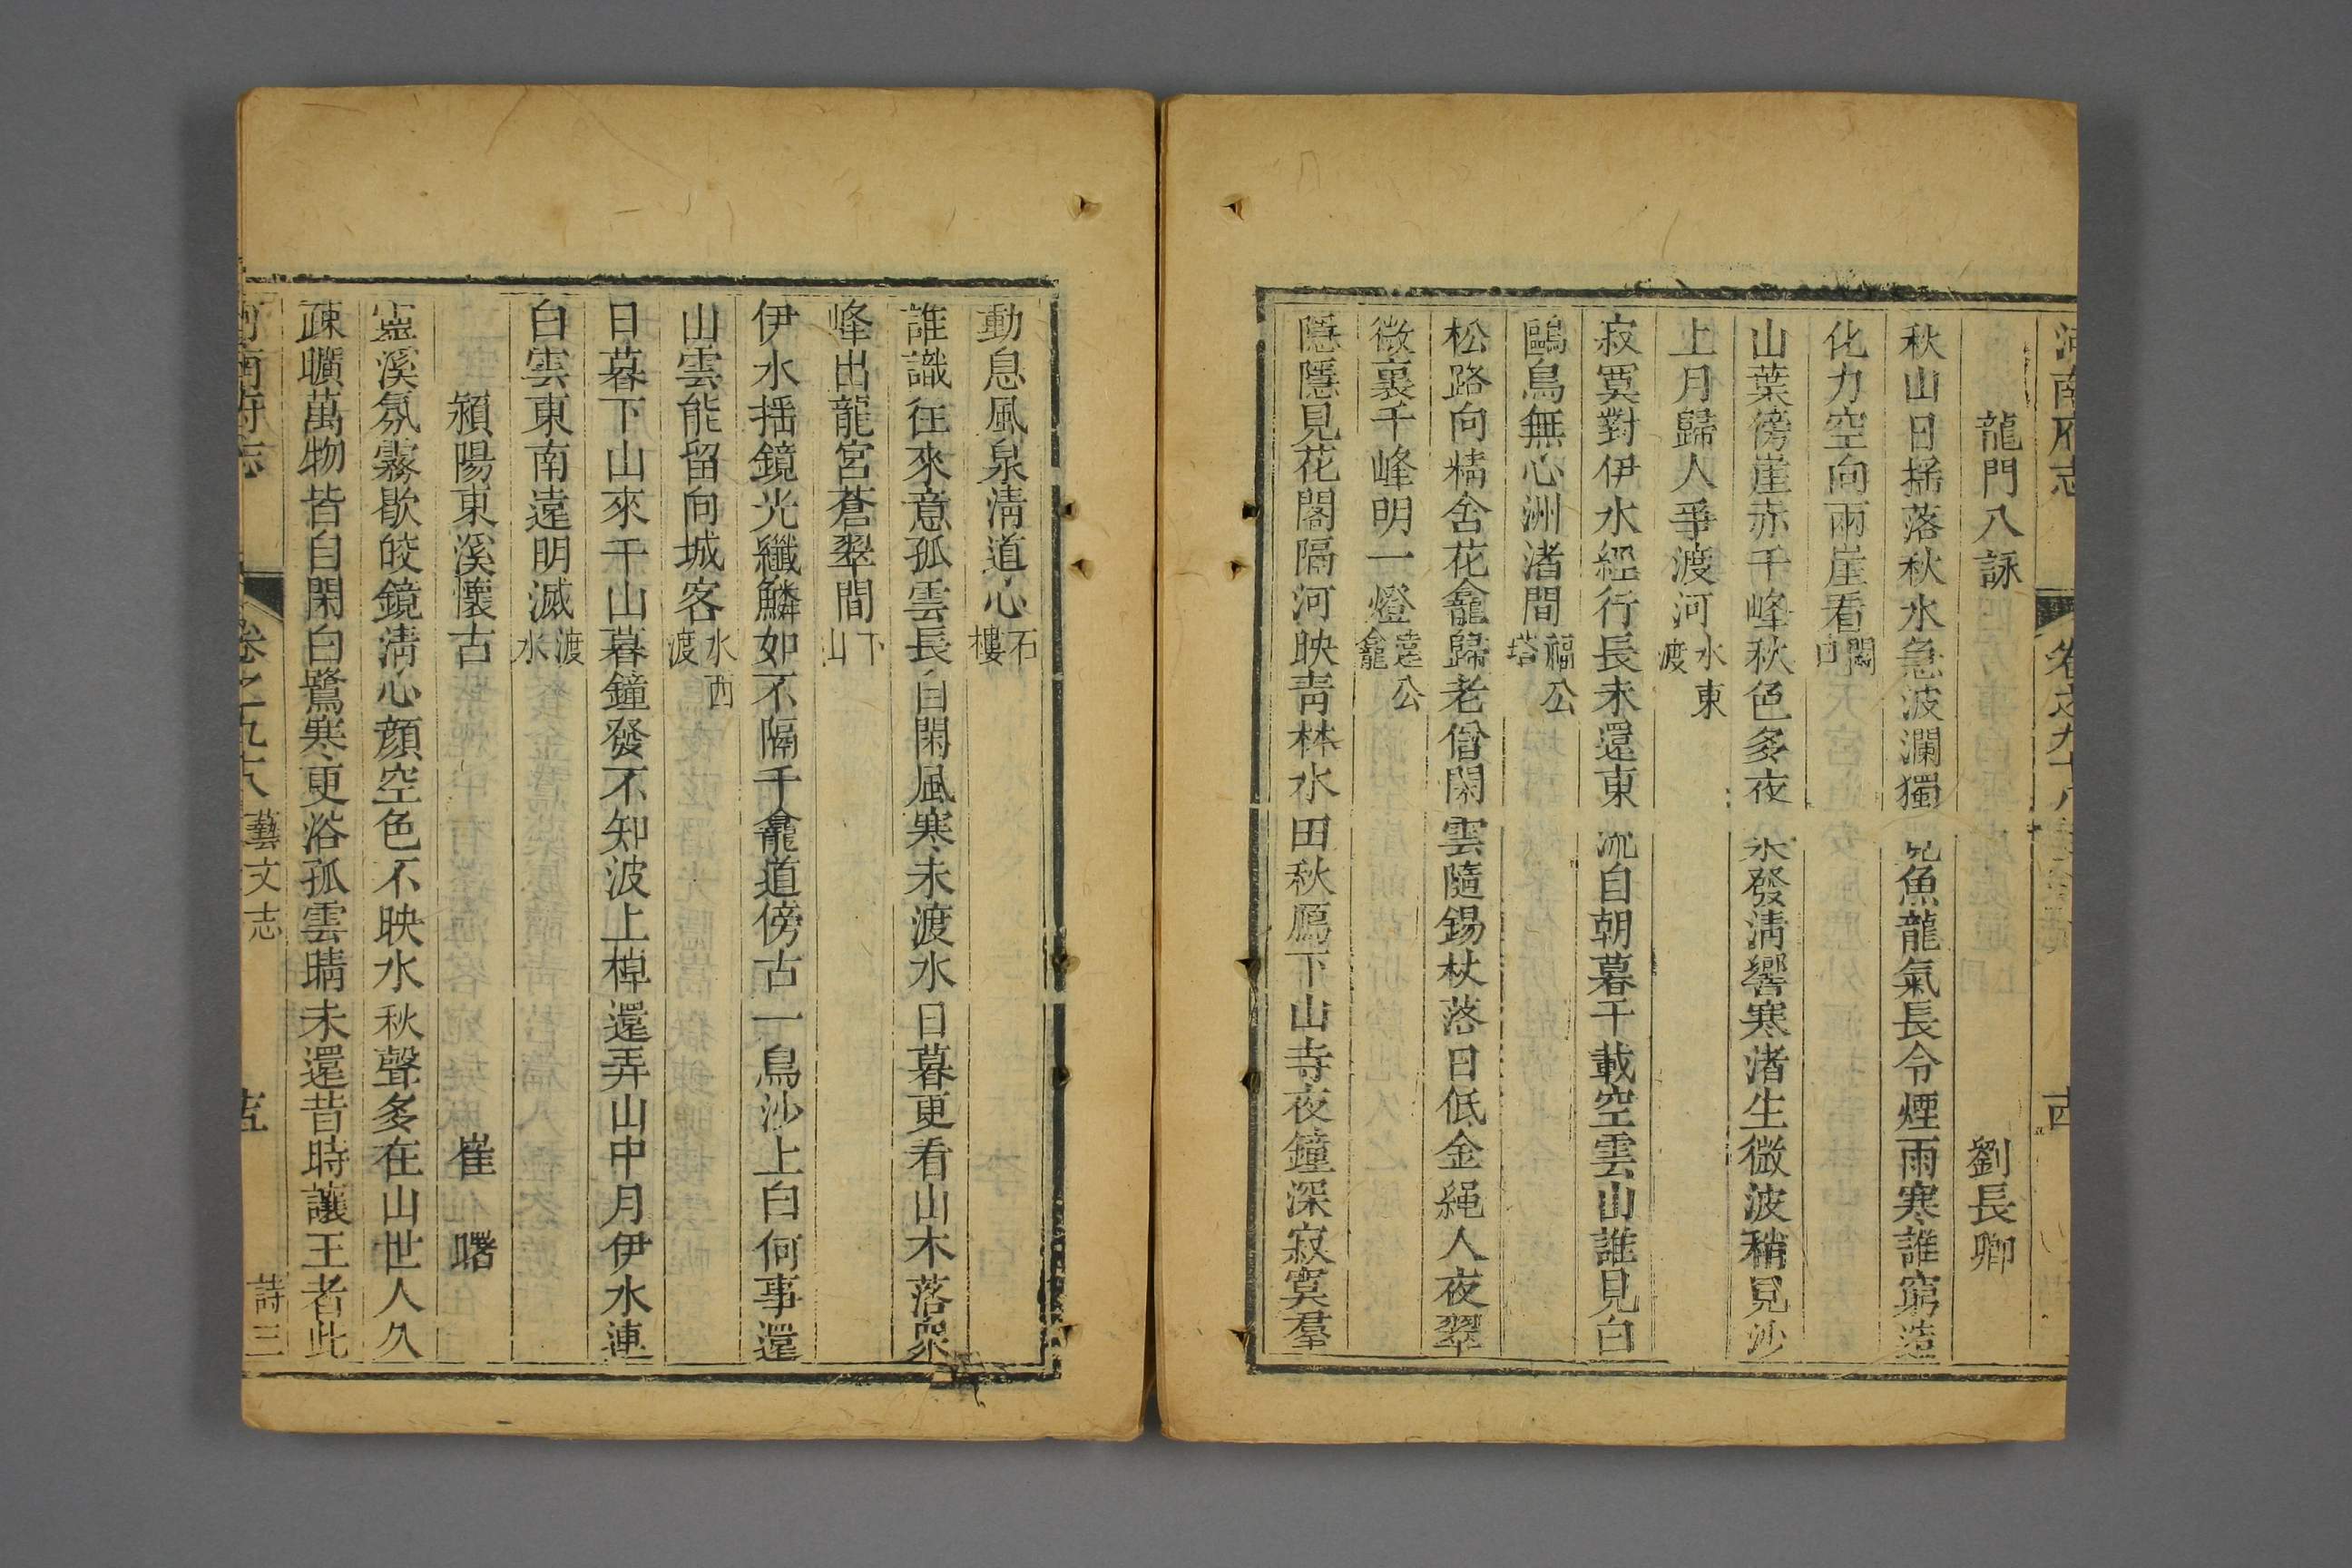 河南府志 卷之九十八 古
龍門八詠 劉長卿
秋山日揺落秋水急波瀾獨見魚龍氣長令煙雨寒誰窮造
化力空向兩崖看闕口
山葉傍崖赤千峰秋色多夜泉發淸響寒渚生微波稍見沙
上月歸人爭渡河水東渡
寂寞對伊水經行長未還東流自朝暮千載空雲山誰見白
鷗鳥無心洲渚間福公塔
松路向精舍花龕歸老僧閑雲隨錫杖落日低金繩人夜翠
微裏千峰明一燈遠公龕
隱隱見花閣隔河映靑林水田秋鴈下山寺夜鐘深寂寞羣
動息風泉淸道心石樓
誰識往來意孤雲長自閑風寒未渡水日暮更看山木落衆
峰出龍宮蒼翠間下山
伊水揺鏡光纖鱗如不隔千龕道傍古一鳥沙上白何事還
山雲能留向城客水西渡
日暮下山來千山暮鐘發不知波上棹還弄山中月伊水連
白雲東南遠明滅渡水
潁陽東溪懷古 崔曙
靈溪氛霧歇皎鏡淸心顔空色不映水秋聲多在山世人久
疎曠萬物皆自閑白鷺寒更浴孤雲晴未還昔時讓王者此
河南府志 卷之九十八 藝文志 詩三